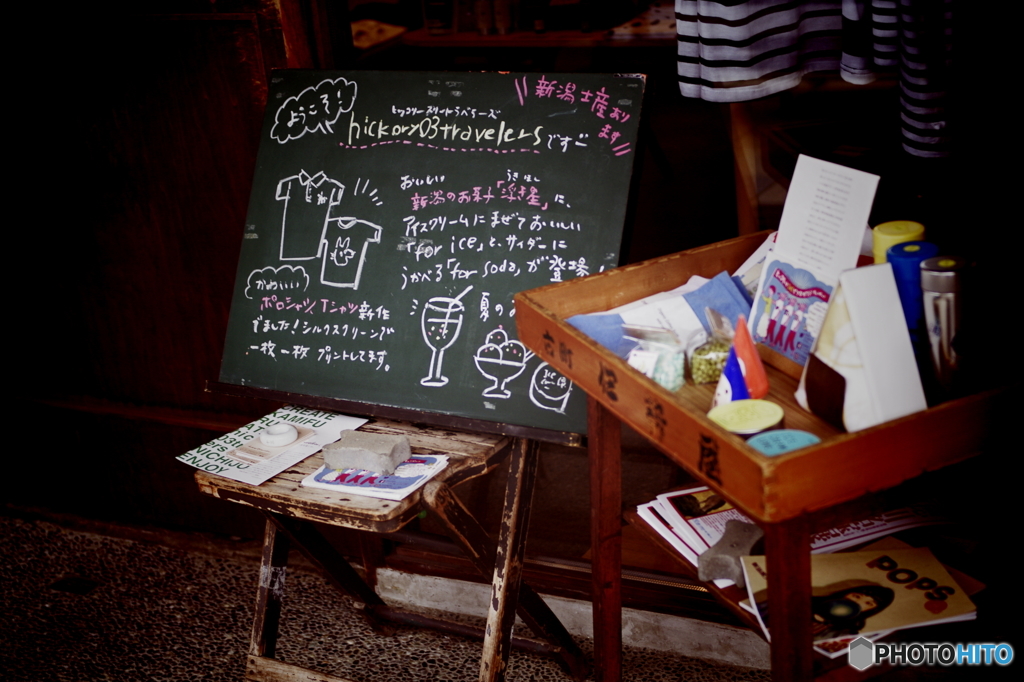 ようこそ!
新潟土産あり
ます
ヒッコリースリートラベラーズ
hickory03travelersです
おいしい
新潟のお菓子「浮き星」に、
うき ほし
アイスクリームにまぜておいしい
「for ice」と、サイダーに
うかべる「for soda」が登場!
夏の
かわいい
ポロシャツ、Tシャツ新作
でました!シルクスクリーンで
一枚一枚プリントしてます。
ENJOY
POPS
PHOTOHITO